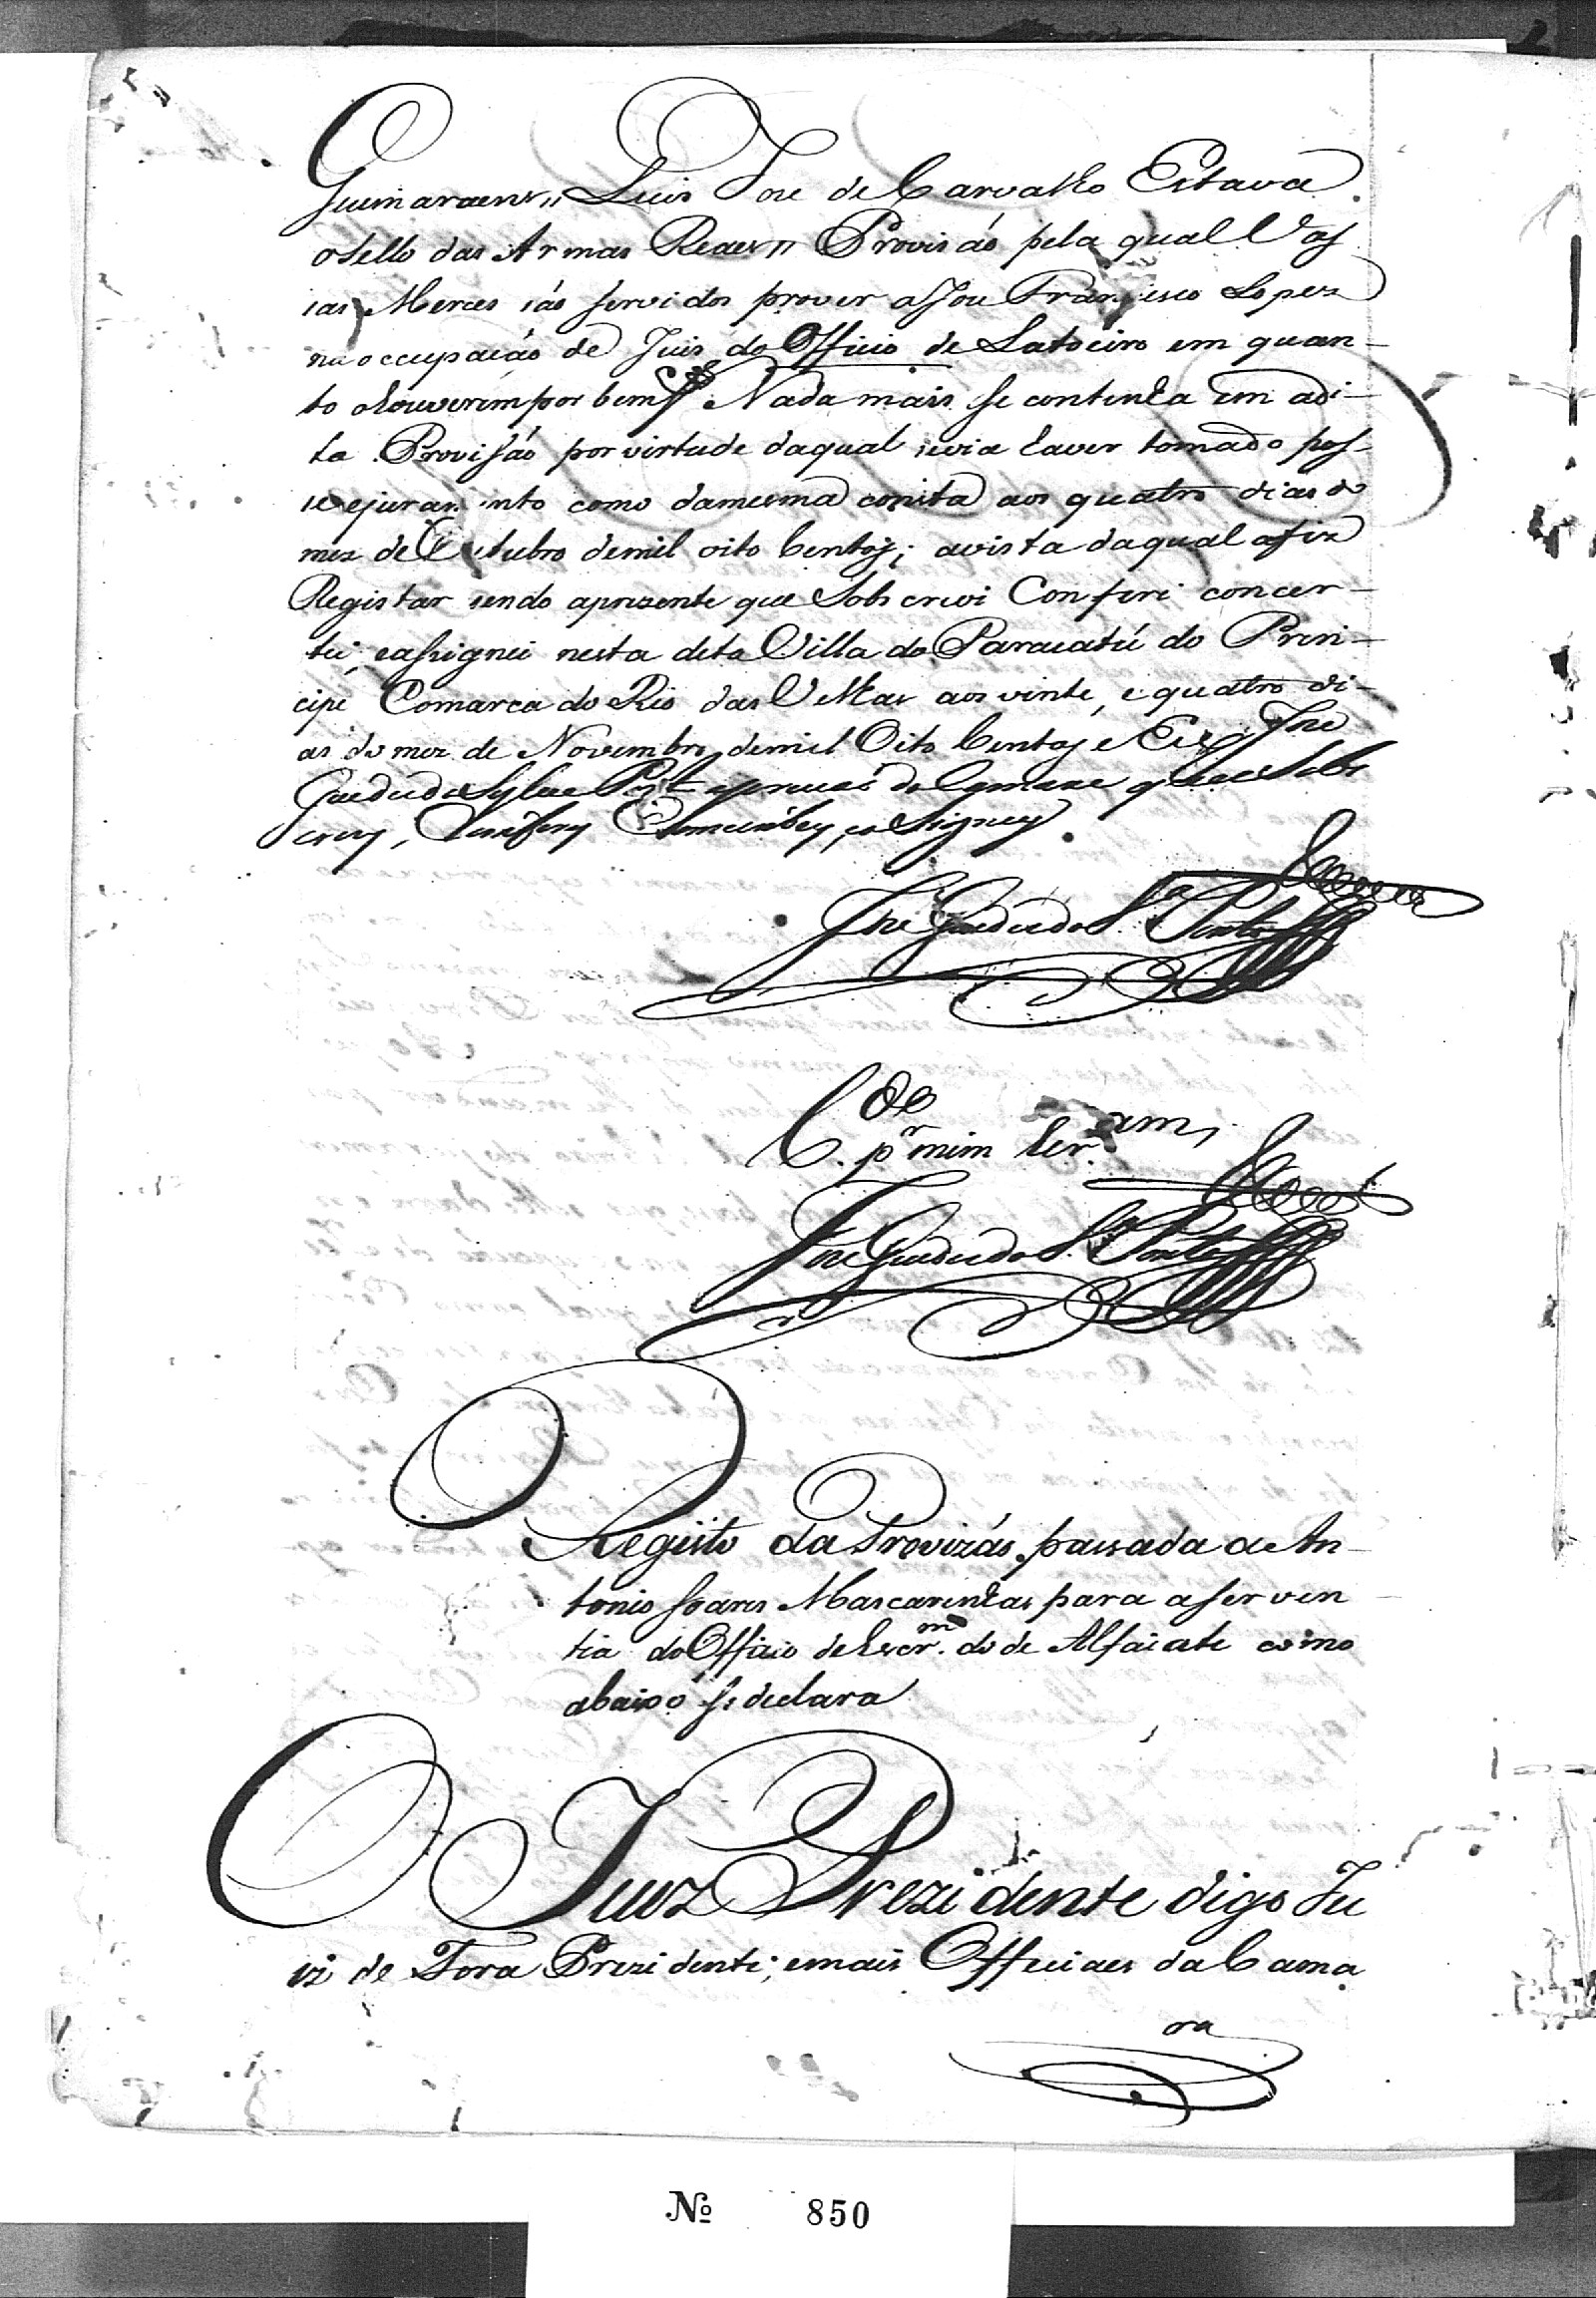 Guimaraens,, Luis Joze de Carvalho Estava
o Sello das Armas Reaes,, Provisáo pela qual Vos
sas Merces sáo servidos prover a Joze Francisco Lopes
na occupaçáo de Juis do Officio de Latoeiro em quan-
to o houverem por bem Nada mais se continha em a di-
ta Provisáo por virtude da qual se via haver tomado pos-
se e juramento como da mesma consta aos quatro dias do
mez de Outubro de mil oito Centos; a vista da qual a fiz
Registar sendo a prezente que Sobscrevi Conferi concer-
tei, e assignei nesta dita Villa do Paracatú do Prin-
cipe Comarca do Rio das Velhas aos vinte, e quatro di-
as do mez de Novembro de mil Oito Centos e Eu Joze
Guedes da Sylva Porto escrivaó da Camara que Sobs
crevy, Confery Comcertey, e aSigney
Joze Guedes da S.ª Porto
C.de
p.r mim Escr.am,
Joze Guedes da S.ª Porto
Registo da Provizáo passada a An-
tonio Soares Mascarenhas para a serven
tia do Officio de Escr.am do de Alfaiate como
abaixo se declara
O Juiz Prezidente digo Ju
iz de Fora Prezidente; e mais Officiaes da Cama
ra
Nº 850